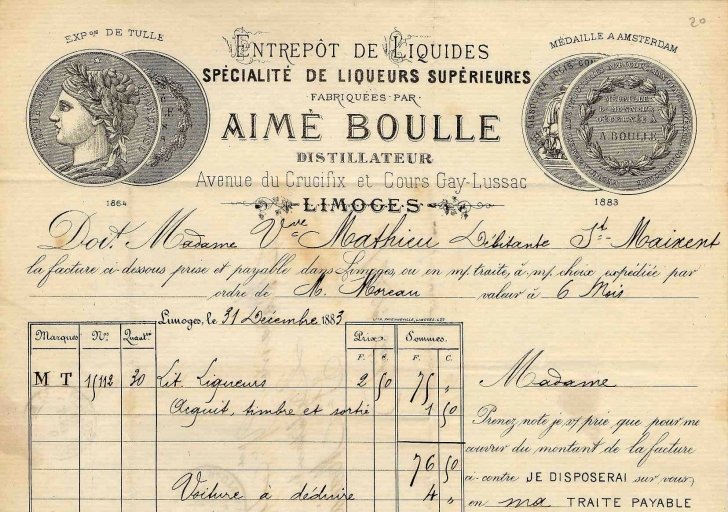 20
EXPon DE TULLE
MÉDAILLE A AMSTERDAM
ENTREPÔT DE LIQUIDES
SPÉCIALITÉ DE LIQUEURS SUPÉRIEURES
FABRIQUÉES PAR
AIMÉ BOULLE
DISTILLATEUR
Avenue du Crucifix et Cours Gay-Lussac
LIMOGES
1864
1883
A BOULLE
Doit Madame Vve Mathieu Débitante St-Maixent
la facture ci-dessous prise et payable dans Limoges, ou en m/ traite, à m/ choix expédiée par
ordre de M. Moreau valeur à 6 Mois
Limoges, le 31 Décembre 1883
Marques Nos Quantés Prix. Sommes.
F. C. F. C.
M T 15112 30 Lit. Liqueurs 2 50 75 "
Acquit, timbre et sortie 1 50
76 50
Voiture à déduire 4 "
Madame
Prenez note je v/ prie que pour me
couvrir du montant de la facture
ci-contre JE DISPOSERAI sur vous,
en ma TRAITE PAYABLE